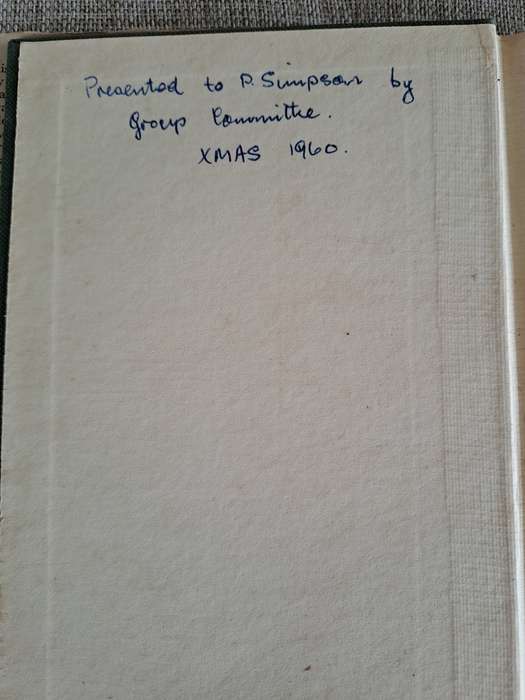 Presented to P. Simpson by
Group Committee.
XMAS 1960.